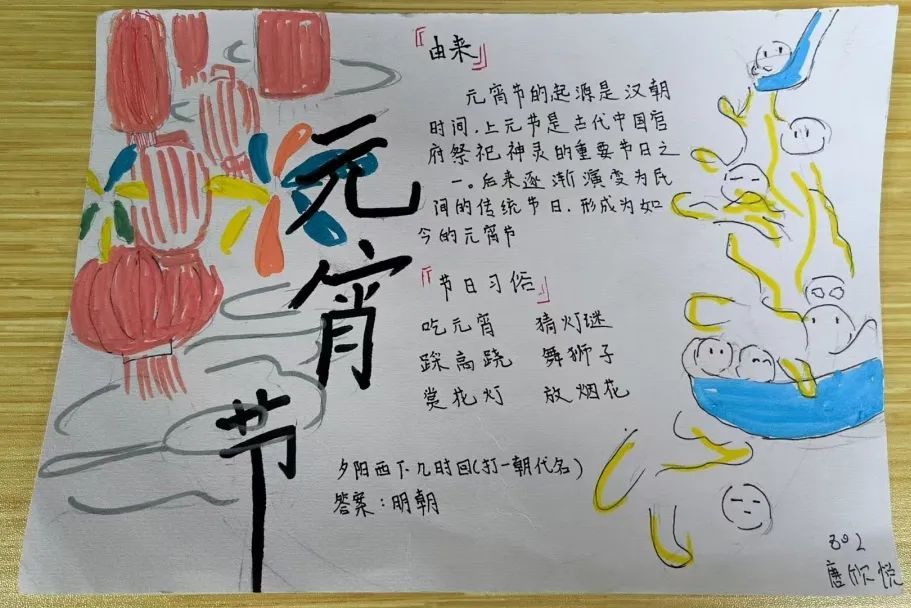 元宵节
「由来」
元宵节的起源是汉朝
时间，上元节是古代中国官
府祭祀神灵的重要节日之
一。后来逐渐演变为民
间的传统节日，形成为如
今的元宵节
「节日习俗」
吃元宵 猜灯谜
踩高跷 舞狮子
赏花灯 放烟花
夕阳西下几时回(打一朝代名)
答案：明朝
802
唐欣悦